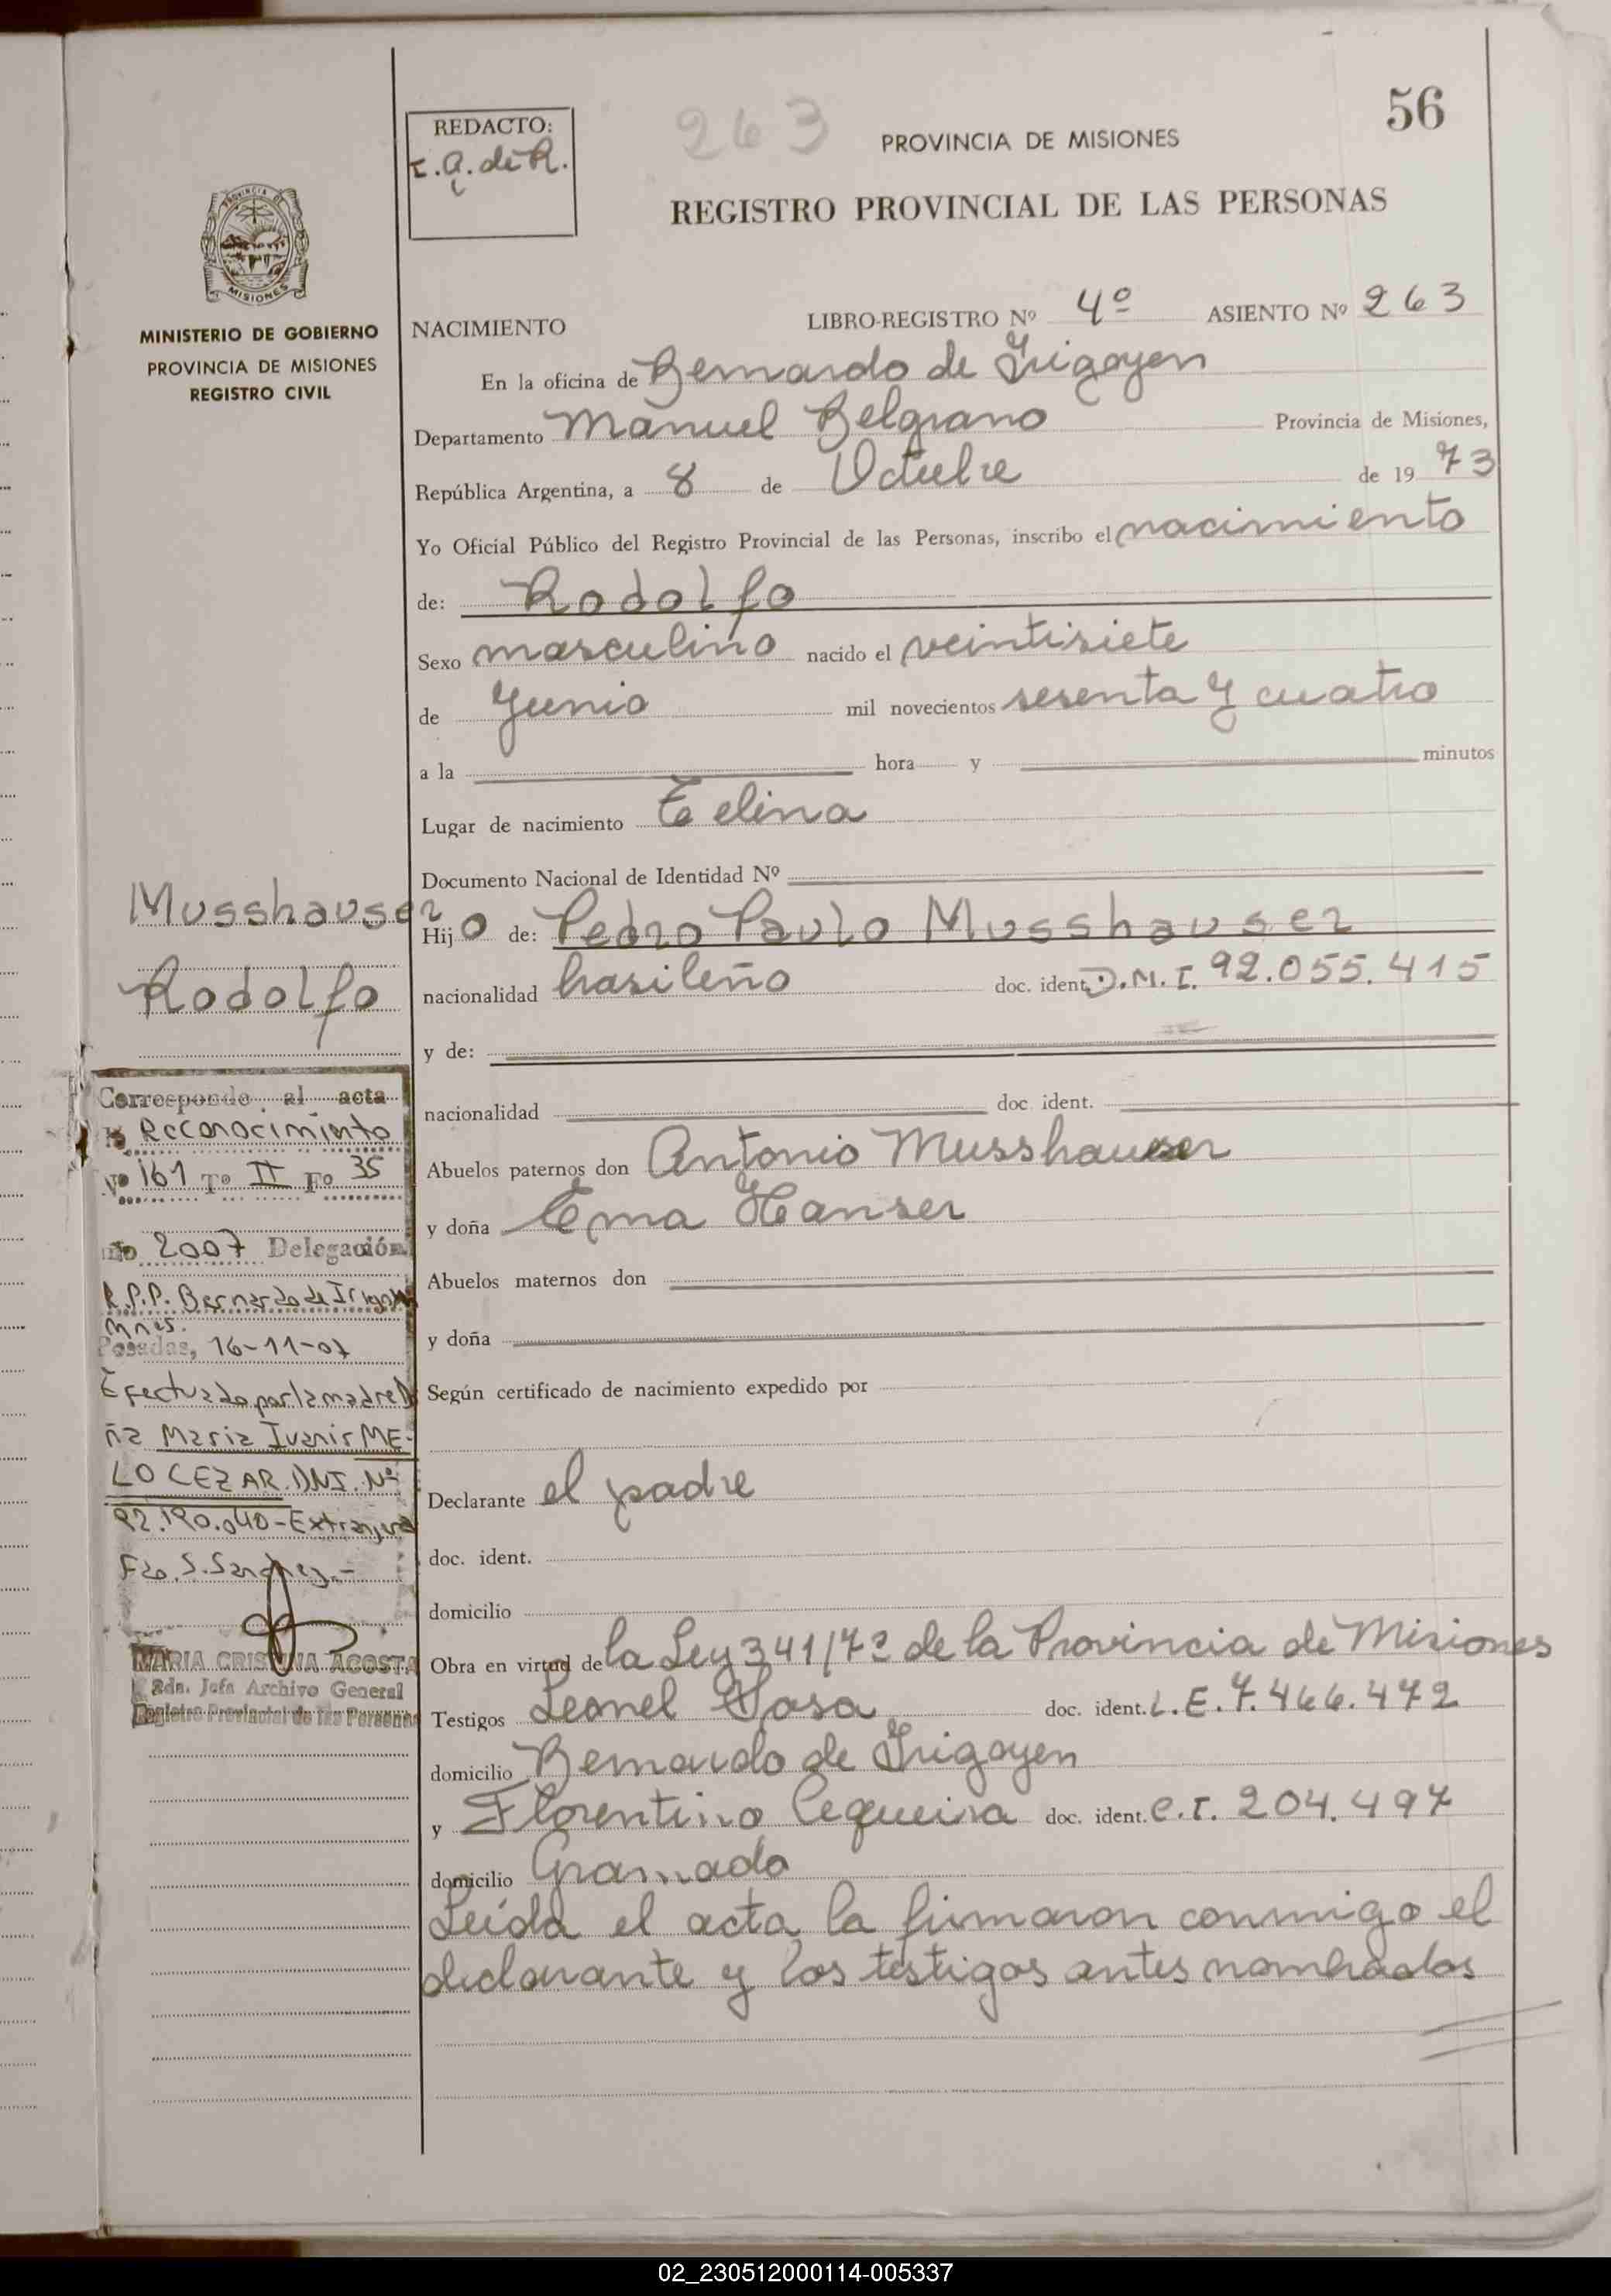 56
REDACTO:
263
PROVINCIA DE MISIONES
REGISTRO PROVINCIAL DE LAS PERSONAS
PROVINCIA DE
MISIONES
MINISTERIO DE GOBIERNO
PROVINCIA DE MISIONES
REGISTRO CIVIL
NACIMIENTO
LIBRO-REGISTRO Nº 4º ASIENTO Nº 263
En la oficina de Bernardo de Irigoyen
Departamento Manuel Belgrano Provincia de Misiones,
República Argentina, a 8 de Octubre de 19 73
Yo Oficial Público del Registro Provincial de las Personas, inscribo el nacimiento
de: Rodolfo
Sexo masculino nacido el veintisiete
de Junio mil novecientos sesenta y cuatro
a la hora y minutos
Lugar de nacimiento
Documento Nacional de Identidad Nº
Hijo de: Pedro Paulo Musshauser
nacionalidad brasileño doc. ident. D.N.I. 92.055.415
y de:
nacionalidad doc. ident.
Abuelos paternos don Antonio Musshauser
y doña Ema Hanser
Abuelos maternos don
y doña
Según certificado de nacimiento expedido por
Declarante el padre
doc. ident.
domicilio
Obra en virtud de la Ley 341/72 de la Provincia de Misiones
Testigos Leonel Sosa doc. ident. L.E. 7.466.472
domicilio Bernardo de Irigoyen
y Florentino Cequeira doc. ident. C.I. 204.497
domicilio Gramado
Leída el acta la firmaron conmigo el
declarante y los testigos antes nombrados
Musshauser
Rodolfo
Corresponde al acta
Reconocimiento
Nº 161 Tº II Fº 35
año 2007 Delegación
R.P.P. Bernardo de Irigoyen
Mnes.
Posadas, 16-11-07
Efectuado por la madre Do
ña Maria Ivanir ME-
LO CEZAR. DNI. Nº
92.190.040-Extranjera
Fdo. S. Sanchez.-
MARIA CRISTINA ACOSTA
2da. Jefa Archivo General
Registro Provincial de las Personas
02_230512000114-005337